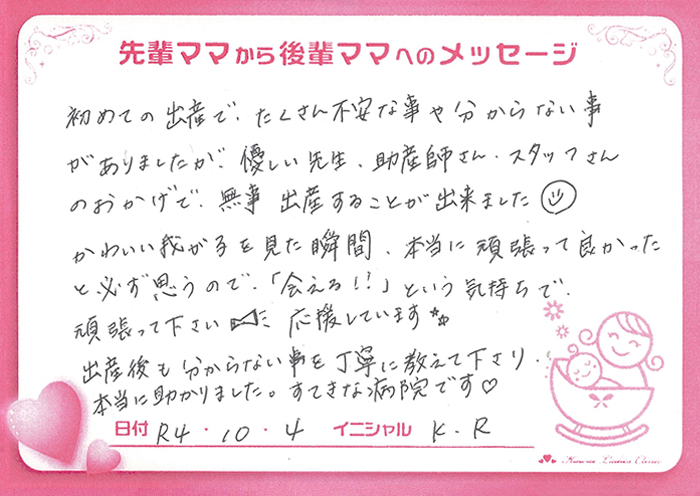 先輩ママから後輩ママへのメッセージ
初めての出産で、たくさん不安な事や分からない事
がありましたが、優しい先生、助産師さん、スタッフさん
のおかげで、無事出産することが出来ました
かわいい我が子を見た瞬間、本当に頑張って良かった
と必ず思うので、「会える!!」という気持ちで、
頑張って下さい 応援しています
出産後も分からない事を丁寧に教えて下さり、
本当に助かりました。すてきな病院です♡
日付 R4・10・4 イニシャル K.R